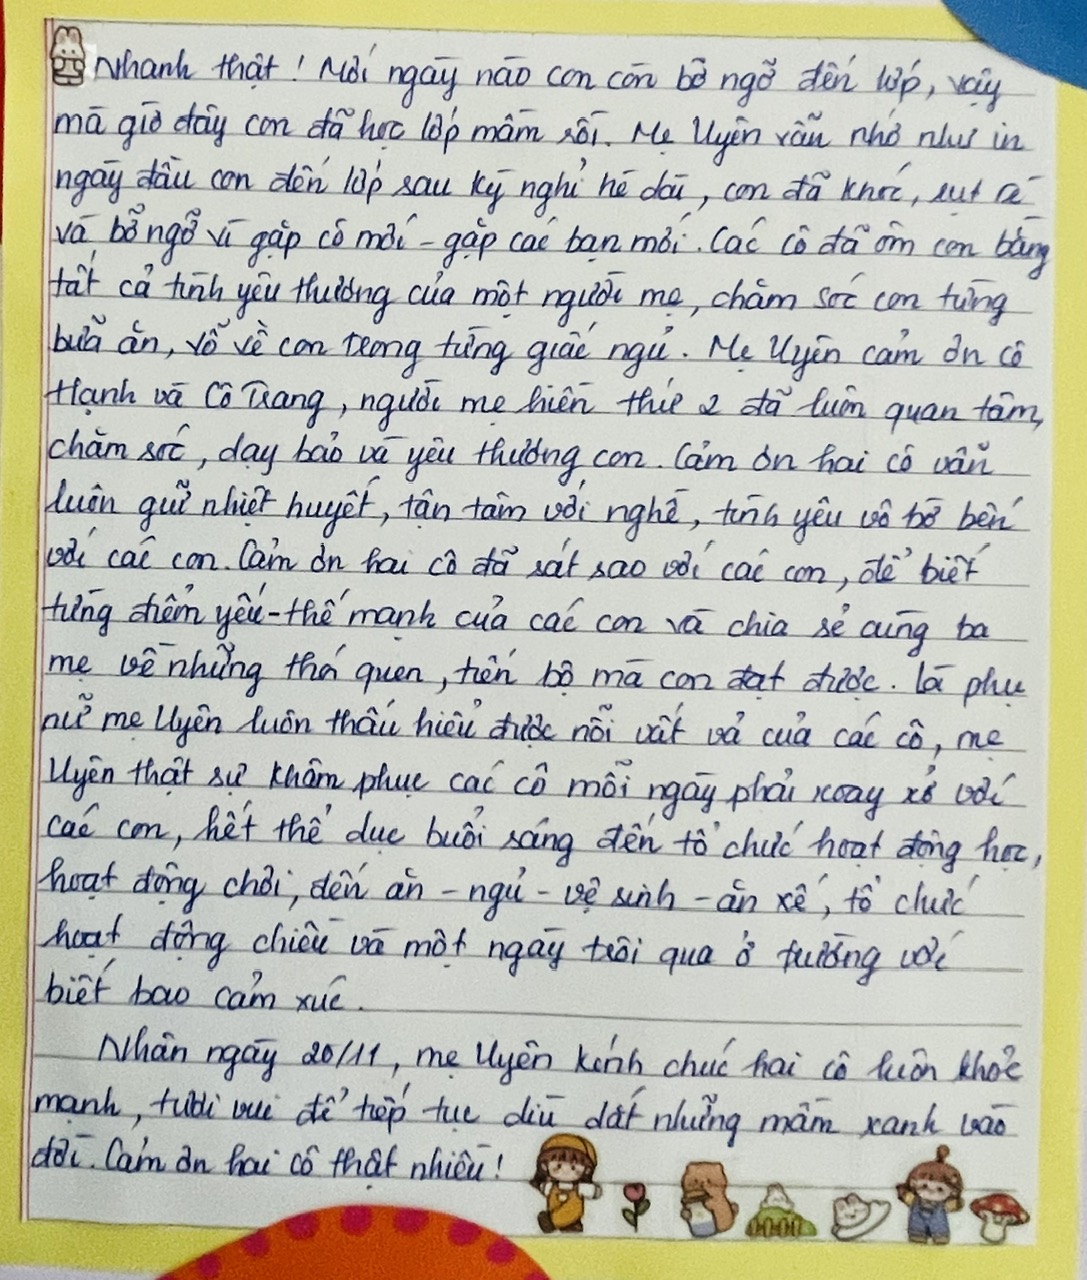 Nhanh thật! Mới ngày nào con còn bỡ ngỡ đến lớp, vậy
mà giờ đây con đã học lớp mầm rồi. Mẹ Uyên vẫn nhớ như in
ngày đầu con đến lớp sau kỳ nghỉ hè dài, con đã khóc, rụt rè
và bỡ ngỡ vì gặp cô mới - gặp các bạn mới. Các cô đã ôm con bằng
tất cả tình yêu thương của một người mẹ, chăm sóc con từng
bữa ăn, vỗ về con trong từng giấc ngủ. Mẹ Uyên cảm ơn cô
Hạnh và Cô Trang, người mẹ hiền thứ 2 đã luôn quan tâm,
chăm sóc, dạy bảo và yêu thương con. Cảm ơn hai cô vẫn
luôn giữ nhiệt huyết, tận tâm với nghề, tình yêu vô bờ bến
với các con. Cảm ơn hai cô đã sát sao với các con, để biết
từng điểm yếu - thế mạnh của các con và chia sẻ cùng ba
mẹ về những thói quen, tiến bộ mà con đạt được. Là phụ
nữ mẹ Uyên luôn thấu hiểu được nỗi vất vả của các cô, mẹ
Uyên thật sự khâm phục các cô mỗi ngày phải xoay xở với
các con, hết thể dục buổi sáng đến tổ chức hoạt động học,
hoạt động chơi, đến ăn - ngủ - vệ sinh - ăn xế, tổ chức
hoạt động chiều và một ngày trôi qua ở trường với
biết bao cảm xúc.
Nhân ngày 20/11, mẹ Uyên kính chúc hai cô luôn khoẻ
mạnh, tươi vui để tiếp tục dìu dắt những mầm xanh vào
đời. Cảm ơn hai cô thật nhiều!